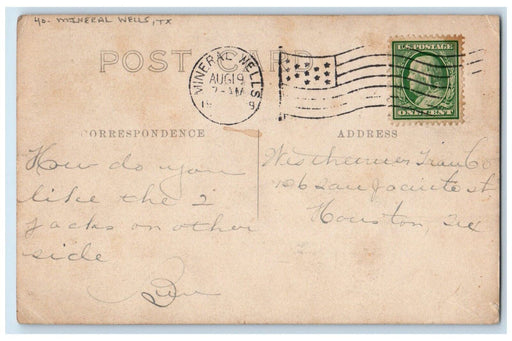 40- MINERAL WELLS, TX
POST CARD
MINERAL WELLS
AUG 19
7-AM
19 9
U.S. POSTAGE
ONE CENT
CORRESPONDENCE
ADDRESS
How do you
like the 2
jacks on other
side
Westheimer Tran Co
San Jacinto st
Houston, Tex